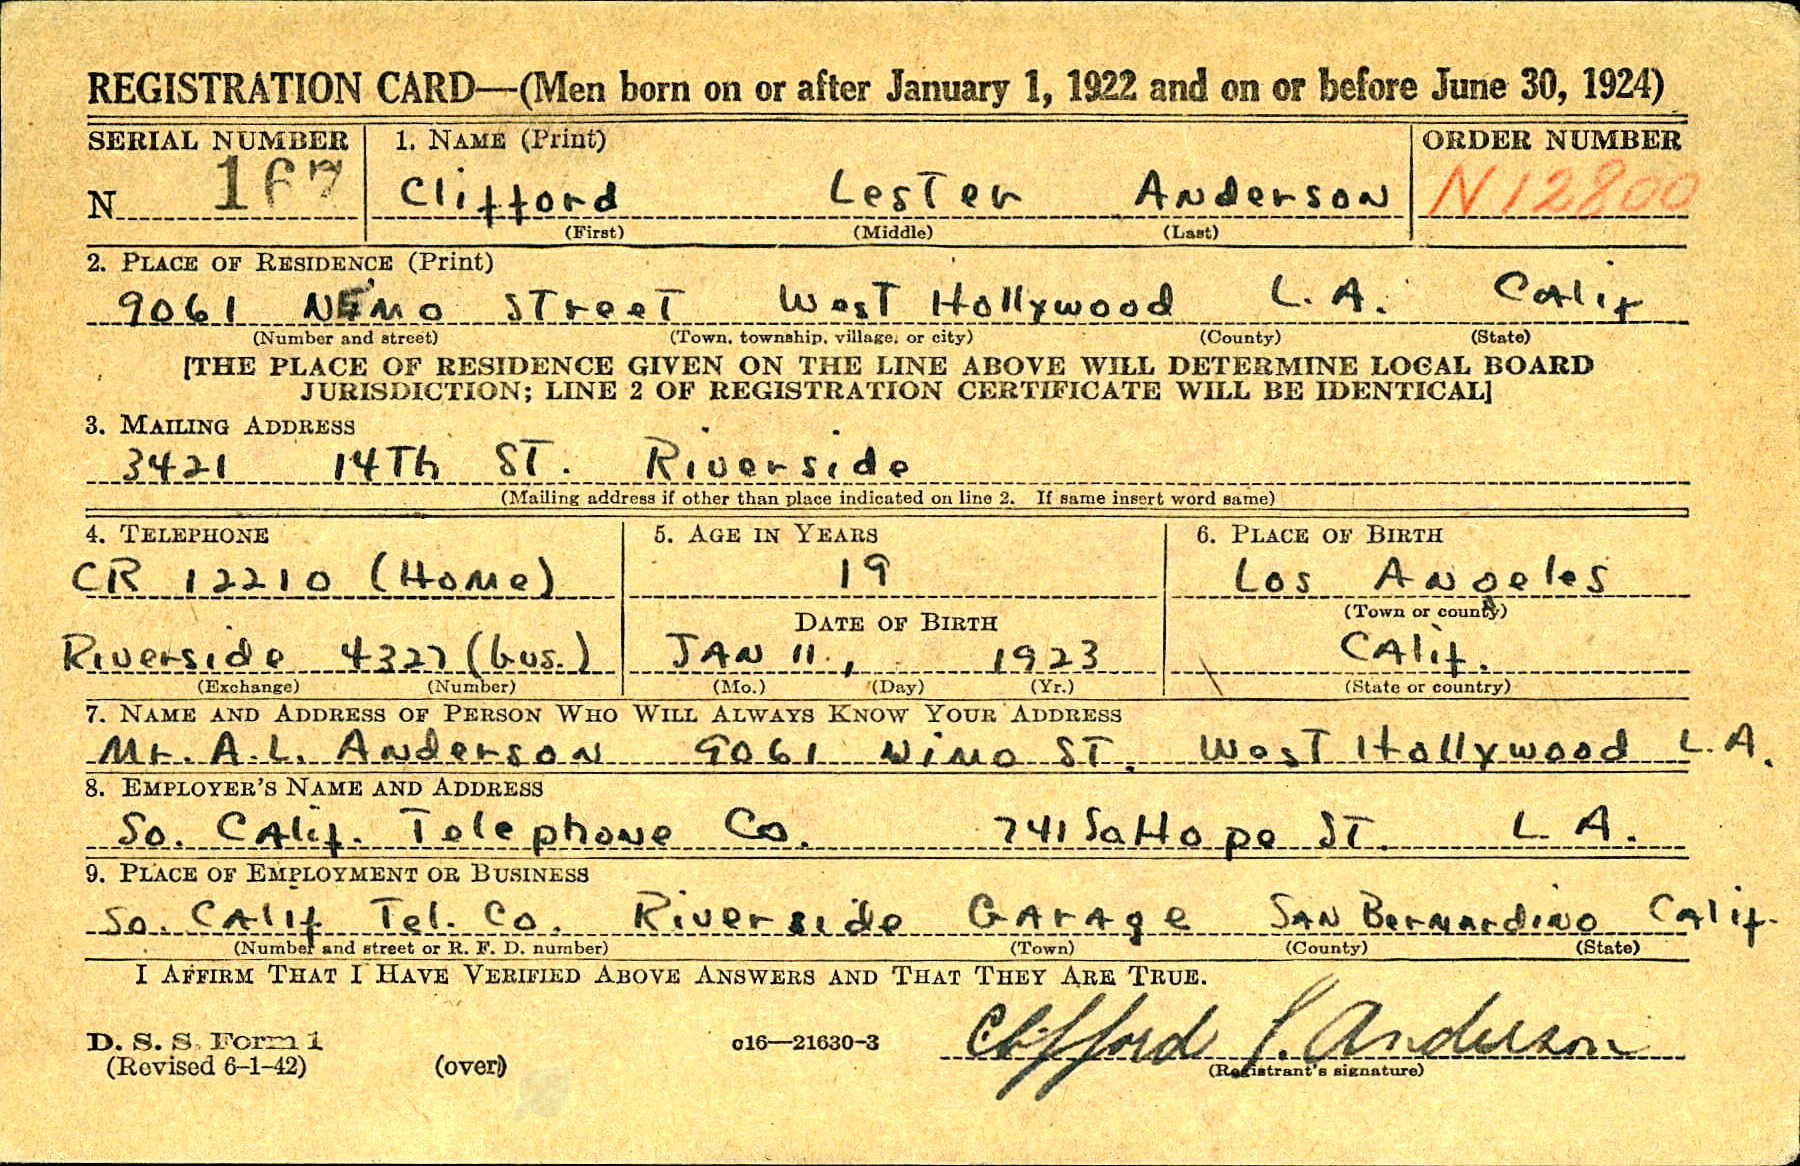 REGISTRATION CARD—(Men born on or after January 1, 1922 and on or before June 30, 1924)
SERIAL NUMBER 1. NAME (Print) ORDER NUMBER
N 167 Clifford Lester Anderson N12800
(First) (Middle) (Last)
2. PLACE OF RESIDENCE (Print)
9061 NEMO Street West Hollywood L.A. Calif
(Number and street) (Town, township, village, or city) (County) (State)
[THE PLACE OF RESIDENCE GIVEN ON THE LINE ABOVE WILL DETERMINE LOCAL BOARD
JURISDICTION; LINE 2 OF REGISTRATION CERTIFICATE WILL BE IDENTICAL]
3. MAILING ADDRESS
3421 14Th ST. Riverside
(Mailing address if other than place indicated on line 2. If same insert word same)
4. TELEPHONE 5. AGE IN YEARS 6. PLACE OF BIRTH
CR 12210 (Home) 19 Los Angeles
DATE OF BIRTH (Town or county)
Riverside 4327 (bus.) JAN 11, 1923 Calif.
(Exchange) (Number) (Mo.) (Day) (Yr.) (State or country)
7. NAME AND ADDRESS OF PERSON WHO WILL ALWAYS KNOW YOUR ADDRESS
Mr. A.L. Anderson 9061 Nimo ST. West Hollywood L.A.
8. EMPLOYER'S NAME AND ADDRESS
So. Calif. Telephone Co. 741 So Hope ST. L.A.
9. PLACE OF EMPLOYMENT OR BUSINESS
So. Calif Tel. Co. Riverside Garage San Bernardino Calif.
(Number and street or R. F. D. number) (Town) (County) (State)
I AFFIRM THAT I HAVE VERIFIED ABOVE ANSWERS AND THAT THEY ARE TRUE.
D. S. S. Form 1
(Revised 6-1-42) (over) c16—21630-3 Clifford L. Anderson
(Registrant's signature)